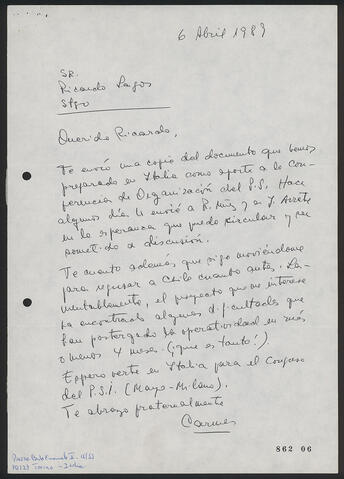 6 Abril 1989
SR.
Ricardo Lagos
Stgo
Querido Ricardo,
Te envío una copia del documento que hemos
preparado en Italia como aporte a la Con-
ferencia de Organización del P.S. Hace
algunos días lo envié a R. Núñez y a J. Arrate
en la esperanza que pueda circular y ser
sometido a discusión.
Te cuento además que sigo moviéndome
para regresar a Chile cuanto antes. La-
mentablemente, el proyecto que me interesa
ha encontrado algunas dificultades que
han postergado la operatividad en más
o menos 4 meses. (¡que es tanto!)
Espero verte en Italia para el Congreso
del P.S.I. (Mayo-Milano).
Te abraza fraternalmente
Carmen
862 06
10123 Torino - Italia